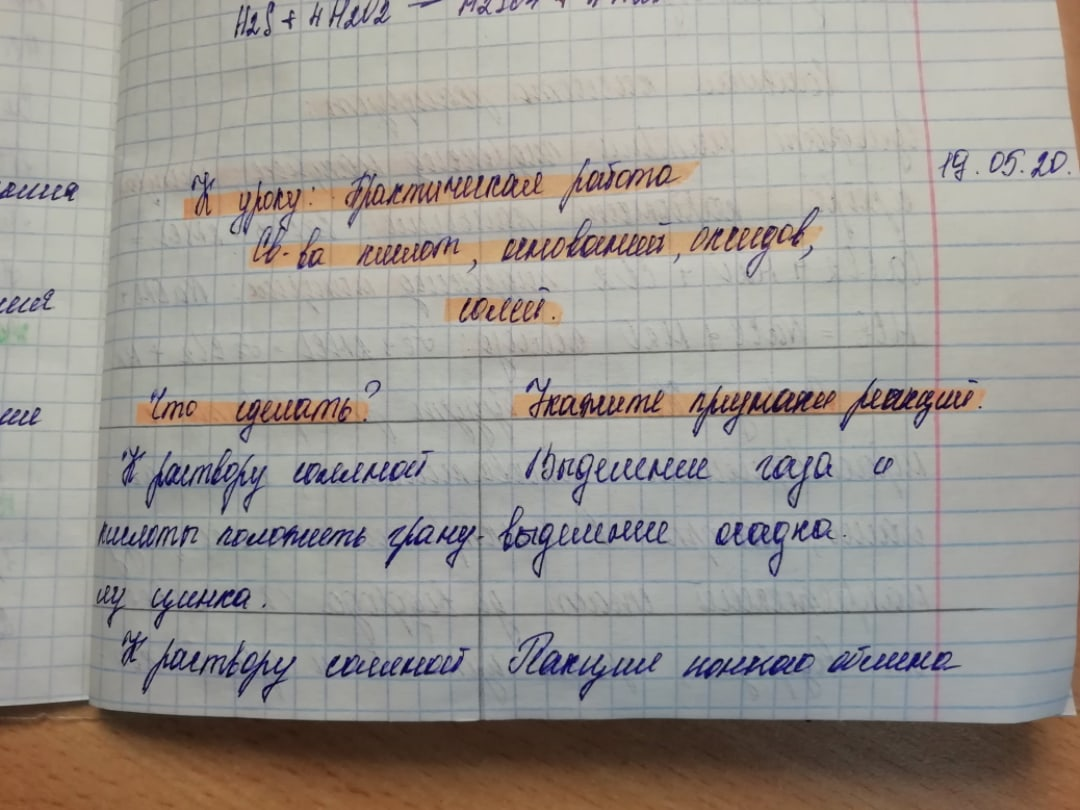 H2S + 4H2O2 — H2SO4 + 4
19.05.20.
К уроку: Практическая работа
Св-ва кислот, оснований, оксидов,
солей.
Что сделать?
Укажите признаки реакций.
К раствору соляной
кислоты положить грану-
лу цинка.
Выделение газа и
выделение осадка.
К раствору соляной
Реакция ионного обмена
ание
ния
ие